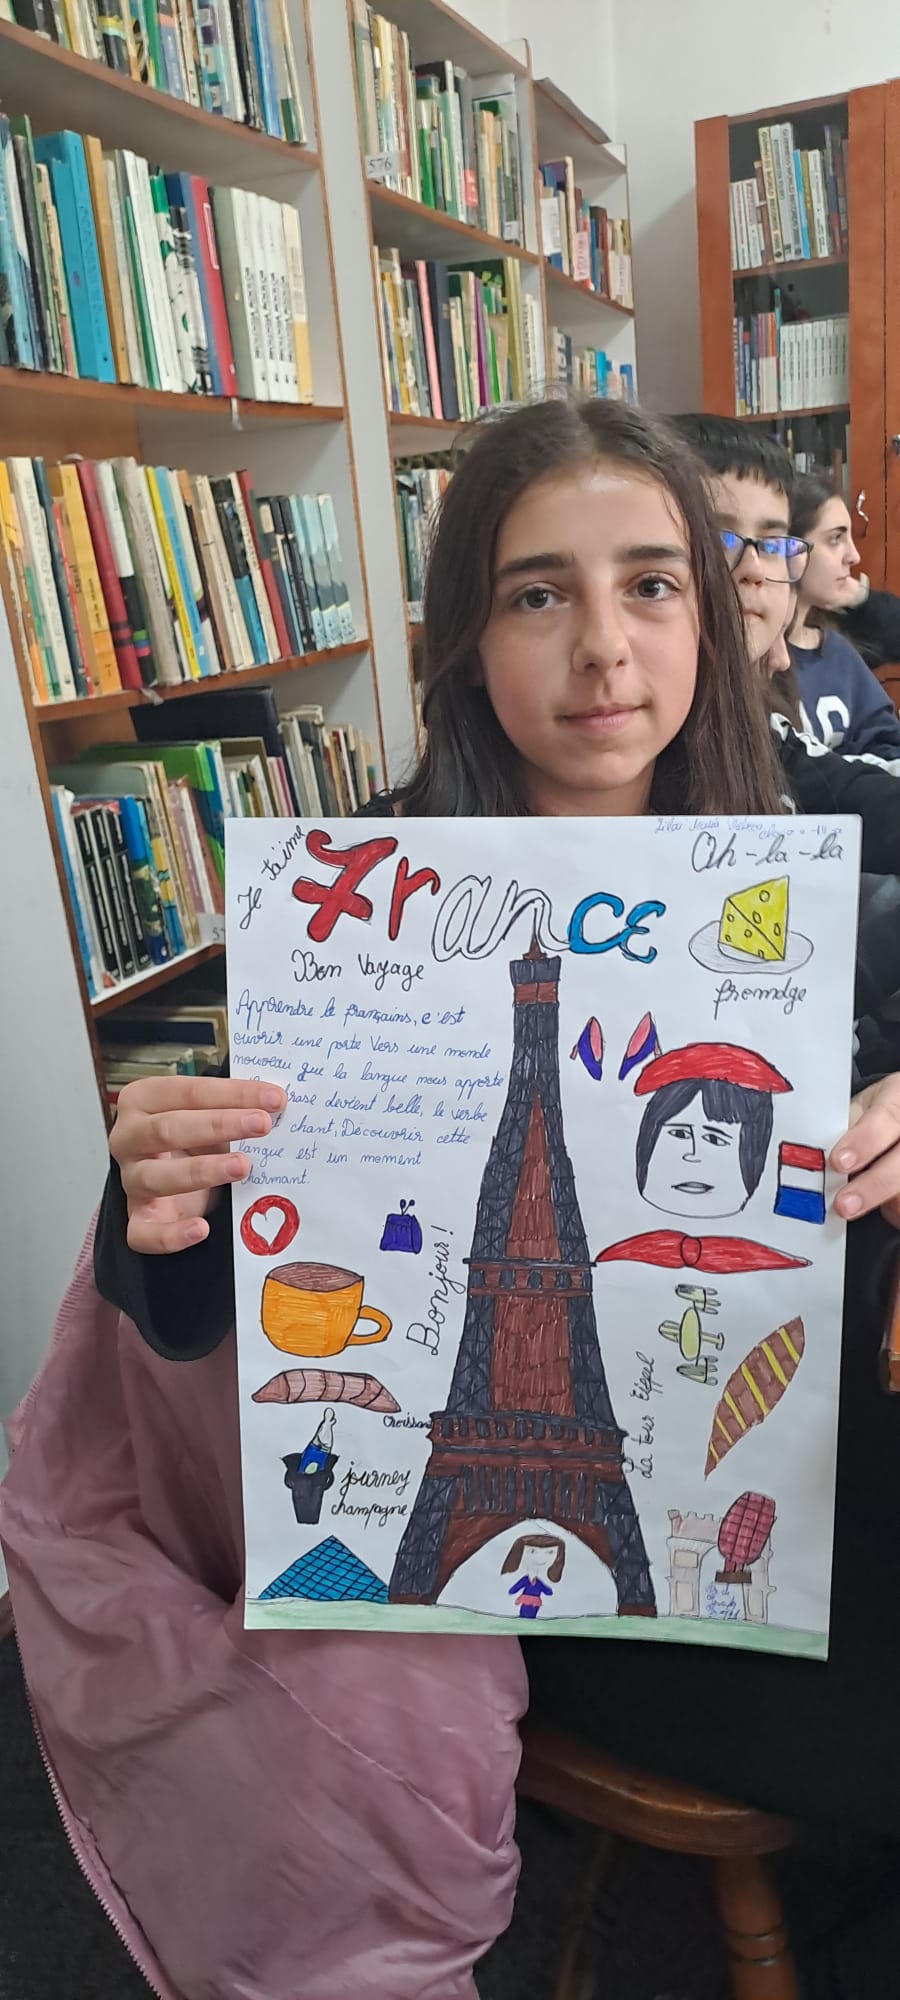 Je t'aime
France
Ah-la-la
Bon Vayage
fromdge
Apprendre le françains, c'est
ouvrir une porte vers une monde
nouveau que la langue nous apporte
devient belle, le verbe
chant, Découvrir cette
langue est un moment
charmant.
Bonjour!
La tour Eiffel
Croissant
journey
champagne
576